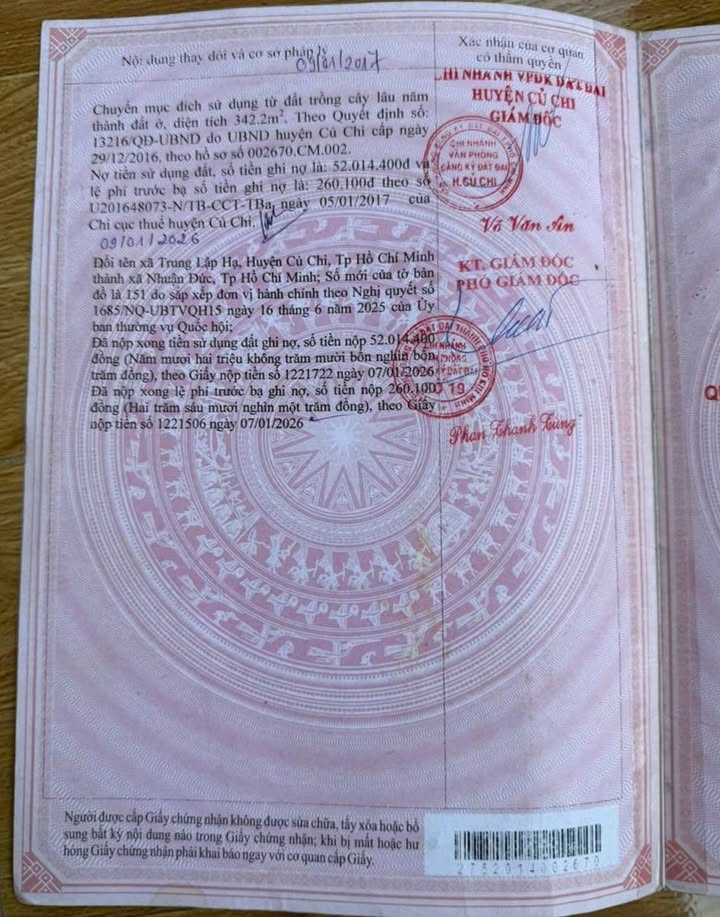 Nội dung thay đổi và cơ sở pháp lý
Xác nhận của cơ quan
có thẩm quyền
09/01/2017
Chuyển mục đích sử dụng từ đất trồng cây lâu năm
thành đất ở, diện tích 342.2m². Theo Quyết định số:
13216/QĐ-UBND do UBND huyện Củ Chi cấp ngày
29/12/2016, theo hồ sơ số 002670.CM.002.
Nợ tiền sử dụng đất, số tiền ghi nợ là: 52.014.400đ và
lệ phí trước bạ số tiền ghi nợ là: 260.100đ theo số
U201648073-N/TB-CCT-TBa ngày 05/01/2017 của
Chi cục thuế huyện Củ Chi.
CHI NHÁNH VPĐK ĐẤT ĐAI
HUYỆN CỦ CHI
GIÁM ĐỐC
CHI NHÁNH
VĂN PHÒNG
ĐĂNG KÝ ĐẤT ĐAI
H.CỦ CHI
Võ Văn Ân
09/01/2026
Đổi tên xã Trung Lập Hạ, Huyện Củ Chi, Tp Hồ Chí Minh
thành xã Nhuận Đức, Tp Hồ Chí Minh; Số mới của tờ bản
đồ là 151 do sắp xếp đơn vị hành chính theo Nghị quyết số
1685/NQ-UBTVQH15 ngày 16 tháng 6 năm 2025 của Ủy
ban thường vụ Quốc hội;
Đã nộp xong tiền sử dụng đất ghi nợ, số tiền nộp 52.014.400
đồng (Năm mươi hai triệu không trăm mười bốn nghìn bốn
trăm đồng), theo Giấy nộp tiền số 1221722 ngày 07/01/2026
Đã nộp xong lệ phí trước bạ ghi nợ, số tiền nộp 260.100
đồng (Hai trăm sáu mươi nghìn một trăm đồng), theo Giấy
nộp tiền số 1221506 ngày 07/01/2026
KT. GIÁM ĐỐC
PHÓ GIÁM ĐỐC
CHI NHÁNH
Phan Thanh Tùng
Người được cấp Giấy chứng nhận không được sửa chữa, tẩy xóa hoặc bổ
sung bất kỳ nội dung nào trong Giấy chứng nhận; khi bị mất hoặc hư
hỏng Giấy chứng nhận phải khai báo ngay với cơ quan cấp Giấy.